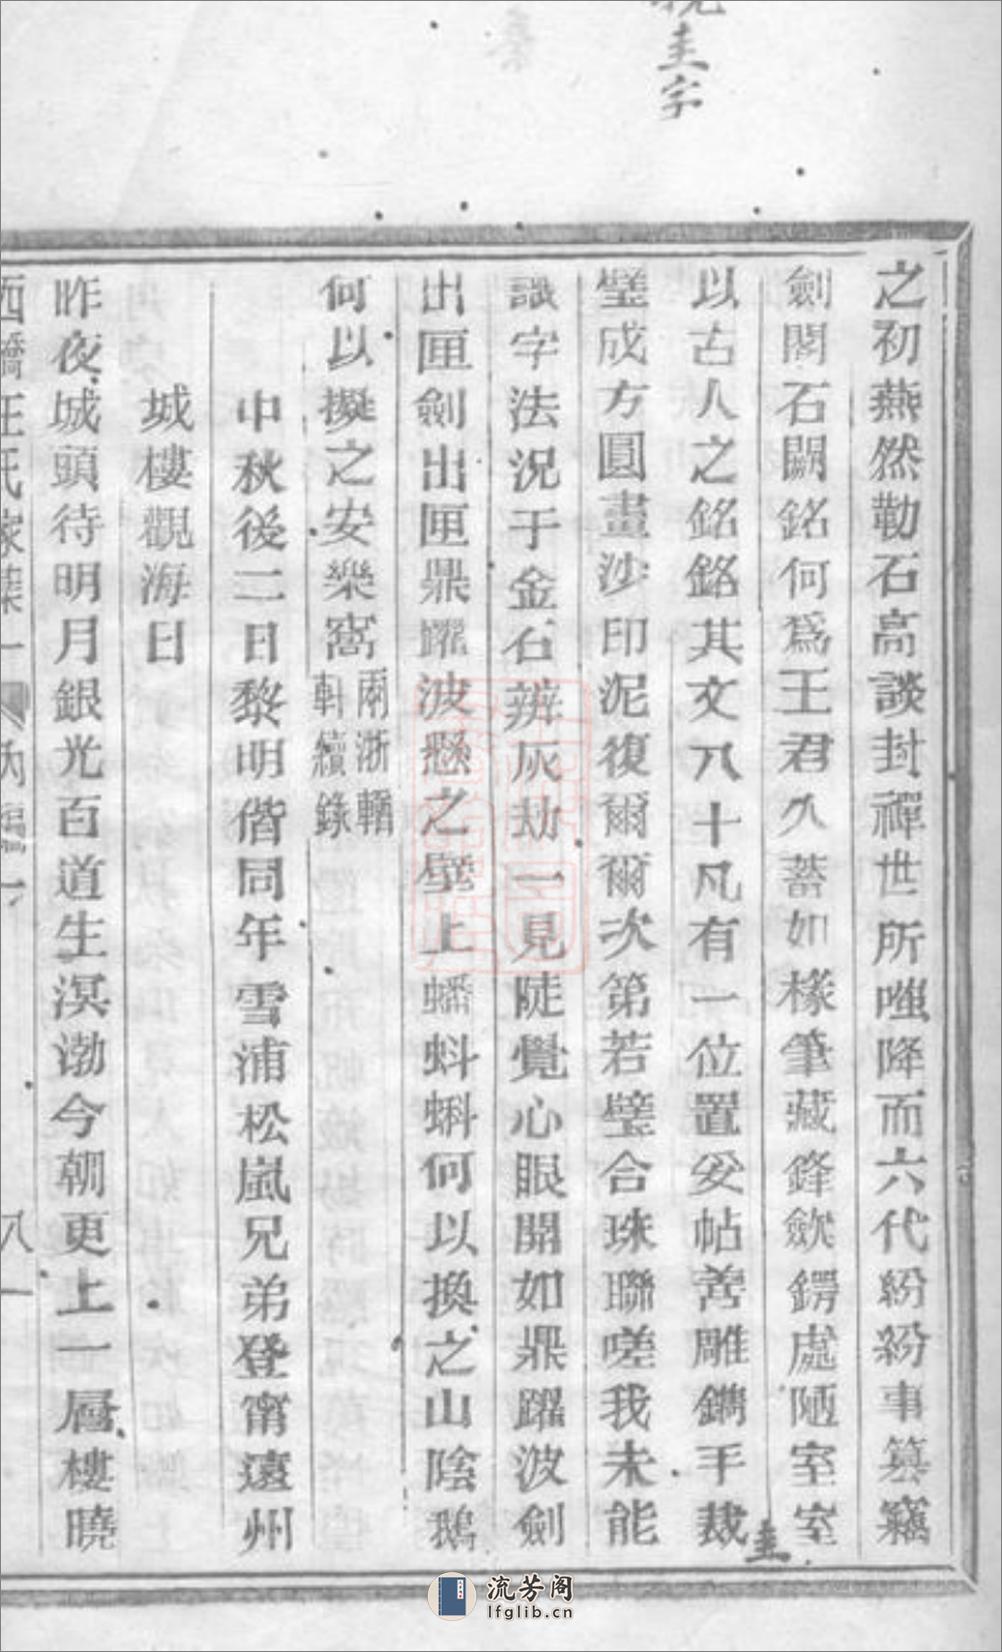 圭字
之初燕然勒石高談封禪世所嗤降而六代紛紛事篡竊
劍閣石闕銘何爲王君久蓄如椽筆藏鋒歛鍔處陋室室
以古人之銘銘其文八十凡有一位置妥帖善雕鐫手裁
圭
璧成方圓畫沙印泥復爾爾次第若璧合珠聯嗟我未能
識字法況于金石辨灰劫一見陡覺心眼開如鼎躍波劍
出匣劍出匣鼎躍波懸之壁上蟠蚪蝌何以換之山陰鵝
何以擬之安樂窩兩浙輶
軒續錄
中秋後二日黎明偕同年雪浦松嵐兄弟登甯遠州
城樓觀海日
昨夜城頭待明月銀光百道生溟渤今朝更上一層樓曉
西 汪氏家 一 內編一 八一
流芳阁
lfglib.cn